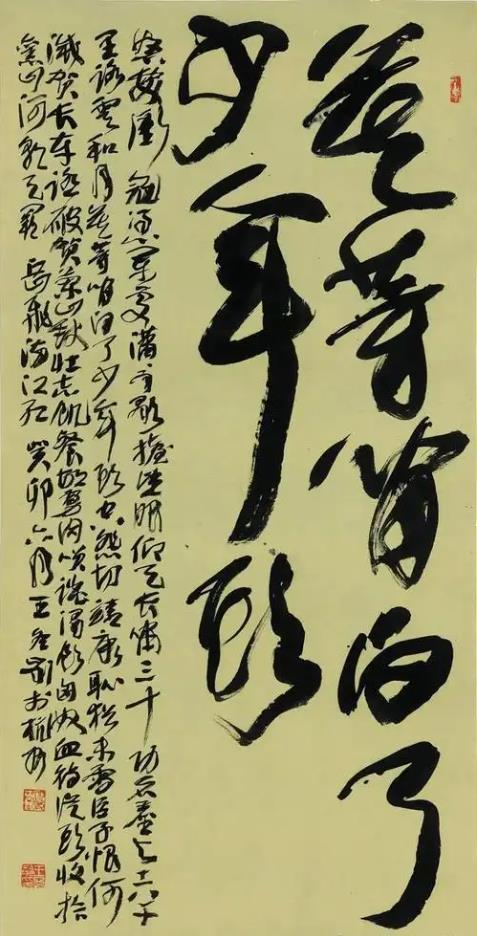 莫等闲白了
少年头
怒髮衝冠雨歇抬望眼仰天长啸三十功名尘与土八千
里路云和月莫等闲白了少年头空悲切靖康耻犹未雪臣子恨何
灭贺长车踏破贺兰山缺壮志饥餐胡虏肉笑谈渴饮匈奴血待从头收拾
山河朝天阙 岳飞满江红 癸卯六月王冬龄书杭州